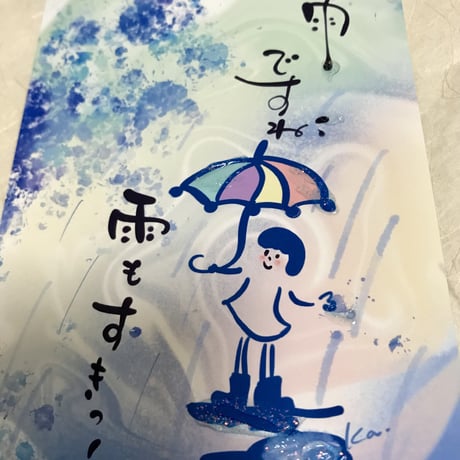 雨ですね:
雨もすきっ!
Ka.